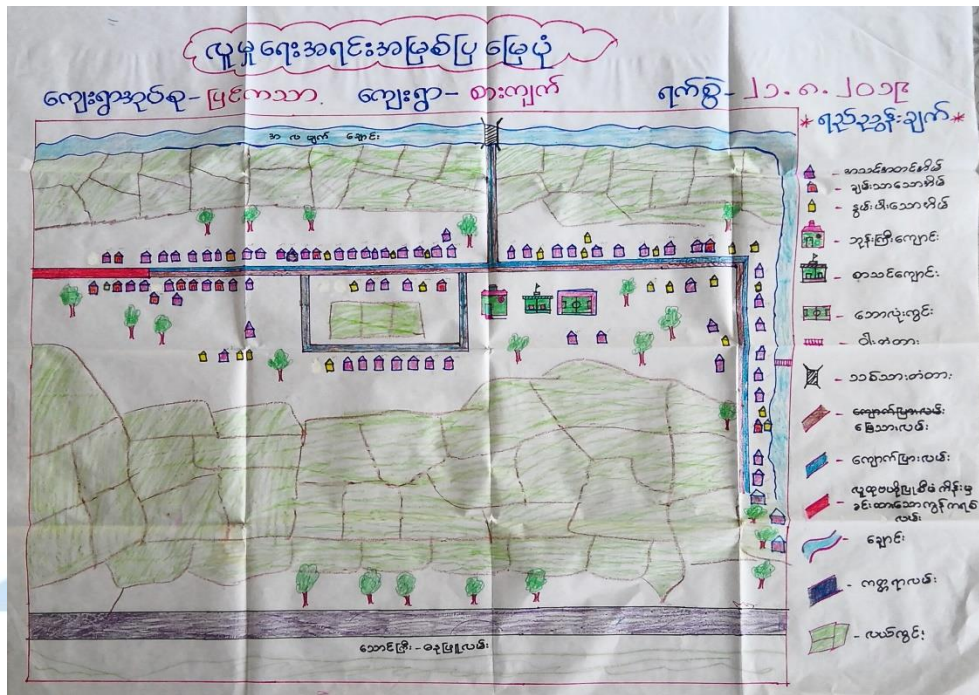 လူမှုရေးအရင်းအမြစ်ပြ မြေပုံ
ကျေးရွာအုပ်စု- မြင်ကသာ. ကျေးရွာ- စားကျက် ရက်စွဲ- ၂၁.၈.၂၀၁၉
* ရည်ညွှန်းချက် *
အလချက် ချောင်း
- အသင့်အတင့်အိမ်
- ချမ်းသာသောအိမ်
- နွမ်းပါးသောအိမ်
- ဘုန်းကြီးကျောင်း
- စာသင်ကျောင်း
- ဘောလုံးကွင်း
- ဝါးတံတား
- သစ်သားတံတား
- ကျောက်ပြားလမ်း
မြေသားလမ်း
- ကျောက်ပြားလမ်း
- လူထုဗဟိုပြုစီမံကိန်းမှ
ခင်းထားသောကွန်ကရစ်
လမ်း
- ချောင်း
- ကတ္တရာလမ်း
- လယ်ကွင်း
သောင်ကြီး - ဓနုဖြူလမ်း